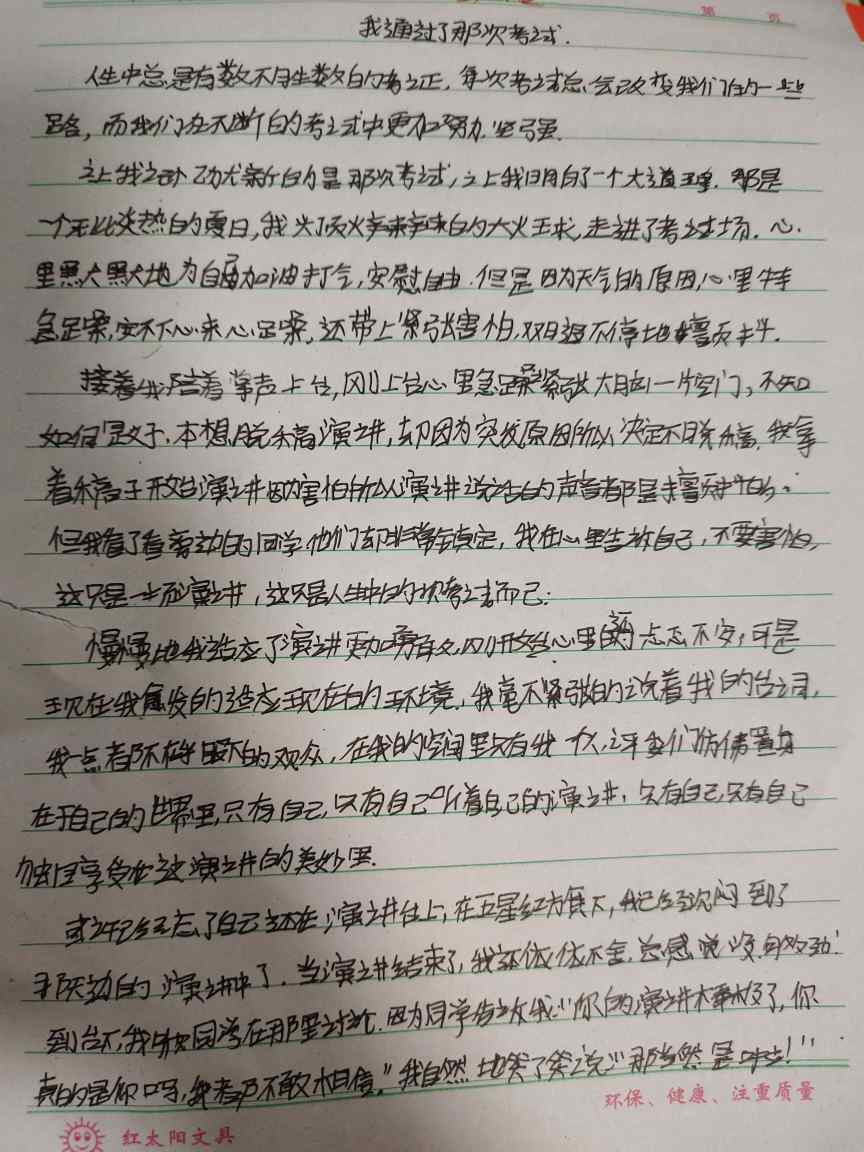 第 页
我通过了那次考试.
人生中总是有数不胜数的考试, 每次考试总会改变我们的一些
路, 而我们在不断的考试中更加努力.坚强.
让我记忆尤新的是那次考试, 让我明白了一个大道理. 那是
一个无比炎热的夏日, 我头顶火辣辣的大火球, 走进了考试场. 心
里默默地为自己加油打气, 安慰自由. 但是因为天气的原因, 心里特
急躁, 安不下心来心躁, 还带上紧张害怕, 双退不停地颤抖.
接着我陪着掌声上台, 刚上台心里急躁紧张大脑一片空门, 不知
如何是好. 本想脱稿演讲, 却因为突发原因所以决定不脱稿, 我拿
着稿子开始演讲因为害怕所以演讲说话的声音都是颤抖的。
但我看了看旁边的同学他们却非常镇定, 我在心里告诉自己, 不要害怕,
这只是一场演讲, 这只是人生中的一项考试而已.
慢慢地我适应了演讲更加勇敢, 刚开始心里 忐忑不安, 可是
现在我愈发的适应现在的环境, 我毫不紧张的说着我的台词,
我一点都不在乎台下的观众, 在我的空间里只有我一个人, 让我们仿佛置身
在于自己的世界里, 只有自己, 只有自己听着自己的演讲, 只有自己, 只有自己
独自享受在这演讲的美妙里.
或许已经忘了自己还在演讲台上, 在五星红旗下, 我已经沉 到了
演讲中了. 当演讲结束了, 我还依依不舍.
到台下, 我 同学在那里讨论. 因为同学告诉我:“你的演讲太棒了, 你
真的是你吗, 我都不敢相信,”我自然地笑了笑说:“那当然是啦!”
环保、健康、注重质量
红太阳文具